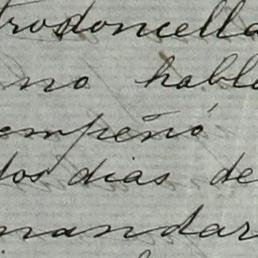 trodoncella
no habl
empeñó
dos dias de
mandar